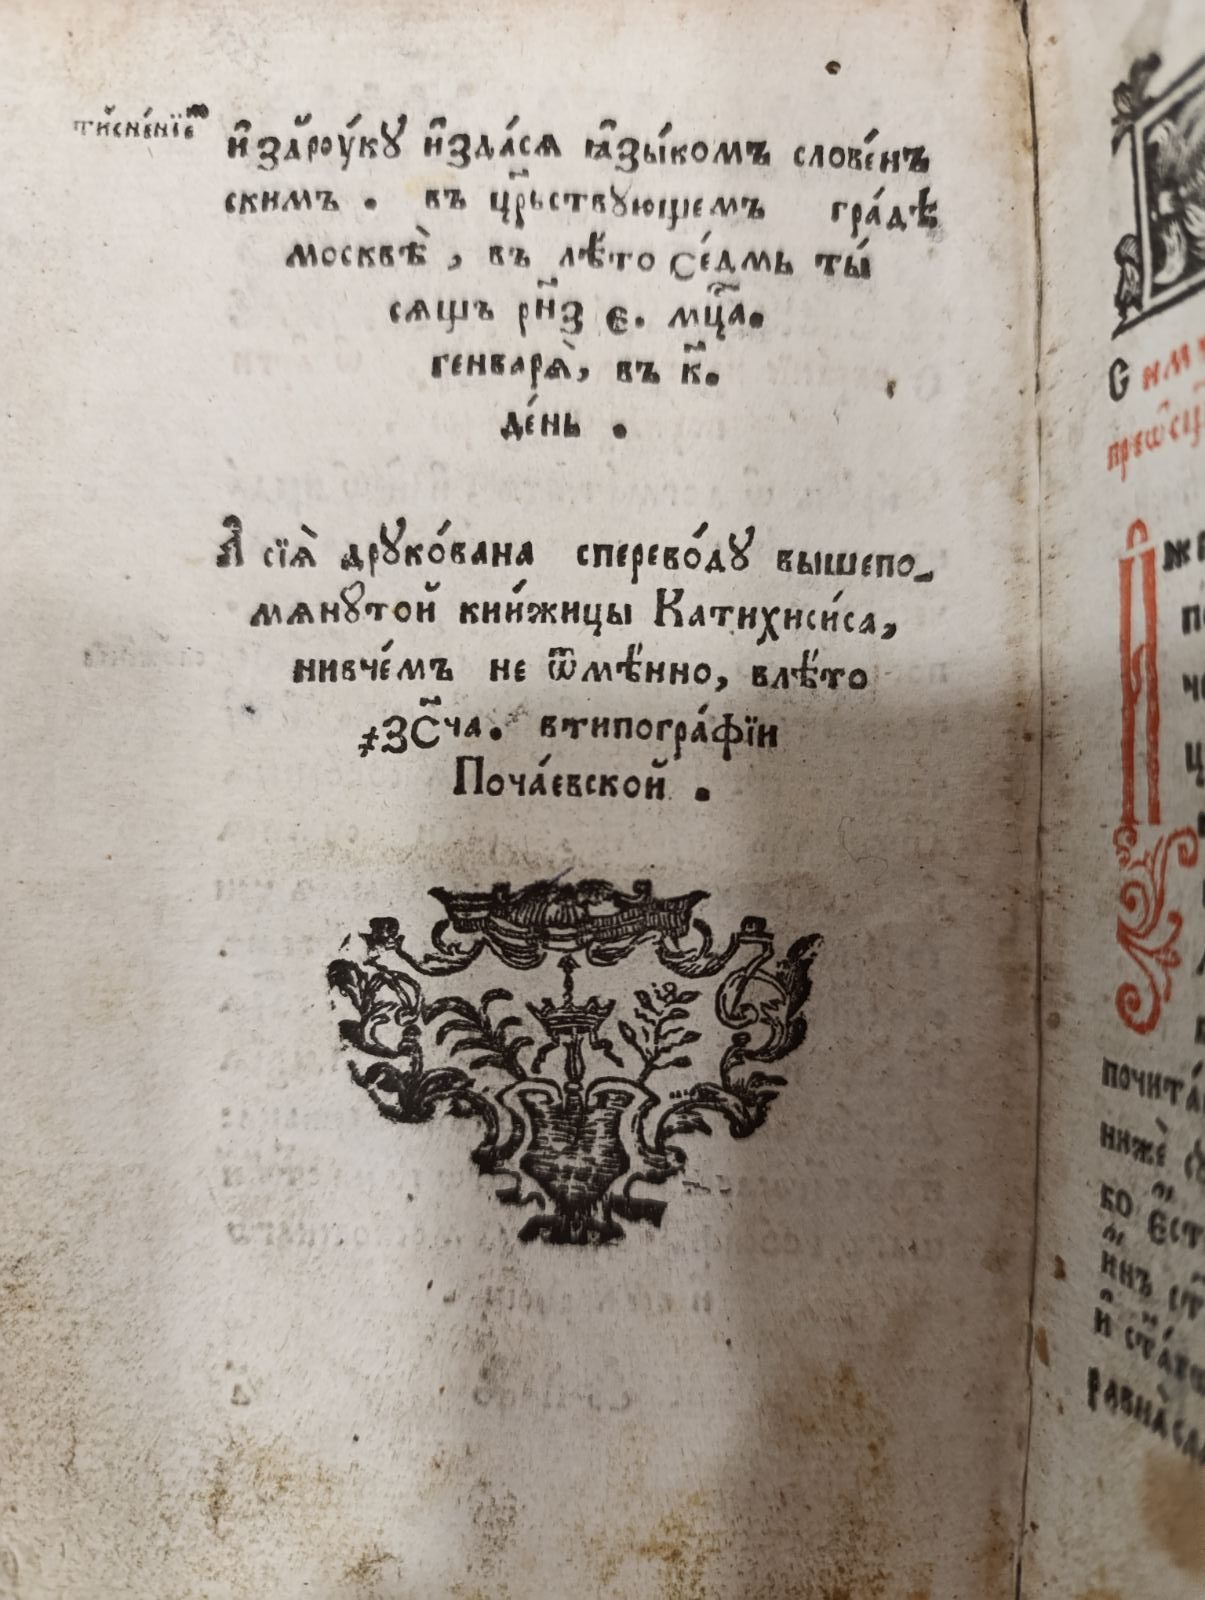 ти́снѣнїе҆мъ
и҆ здаⷬ҇оу́ку и҆зда́сѧ ꙗ҆зы́комъ слове́нъ
скимъ. въ црⷭ҇ьствꙋющемъ гра́дѣ
москвѣ̀, въ лѣ́то се́дмь ты́
сѧщъ рн҃з е. мцⷭ҇а.
генварѧ̀, въ к҃.
де́нь.
А҆ сїѧ̀ дрꙋко́вана сперево́дꙋ вышепо-
мѧнꙋтой кни́жицы Катихиси́са,
нивче́мъ не ѿмѣ́нно, влѣ́то
҂зс҃ча. втипогра́фїи
Поча́евской.
почита́
нижѐ
бо є҆ст
и҆нъ
равна̀